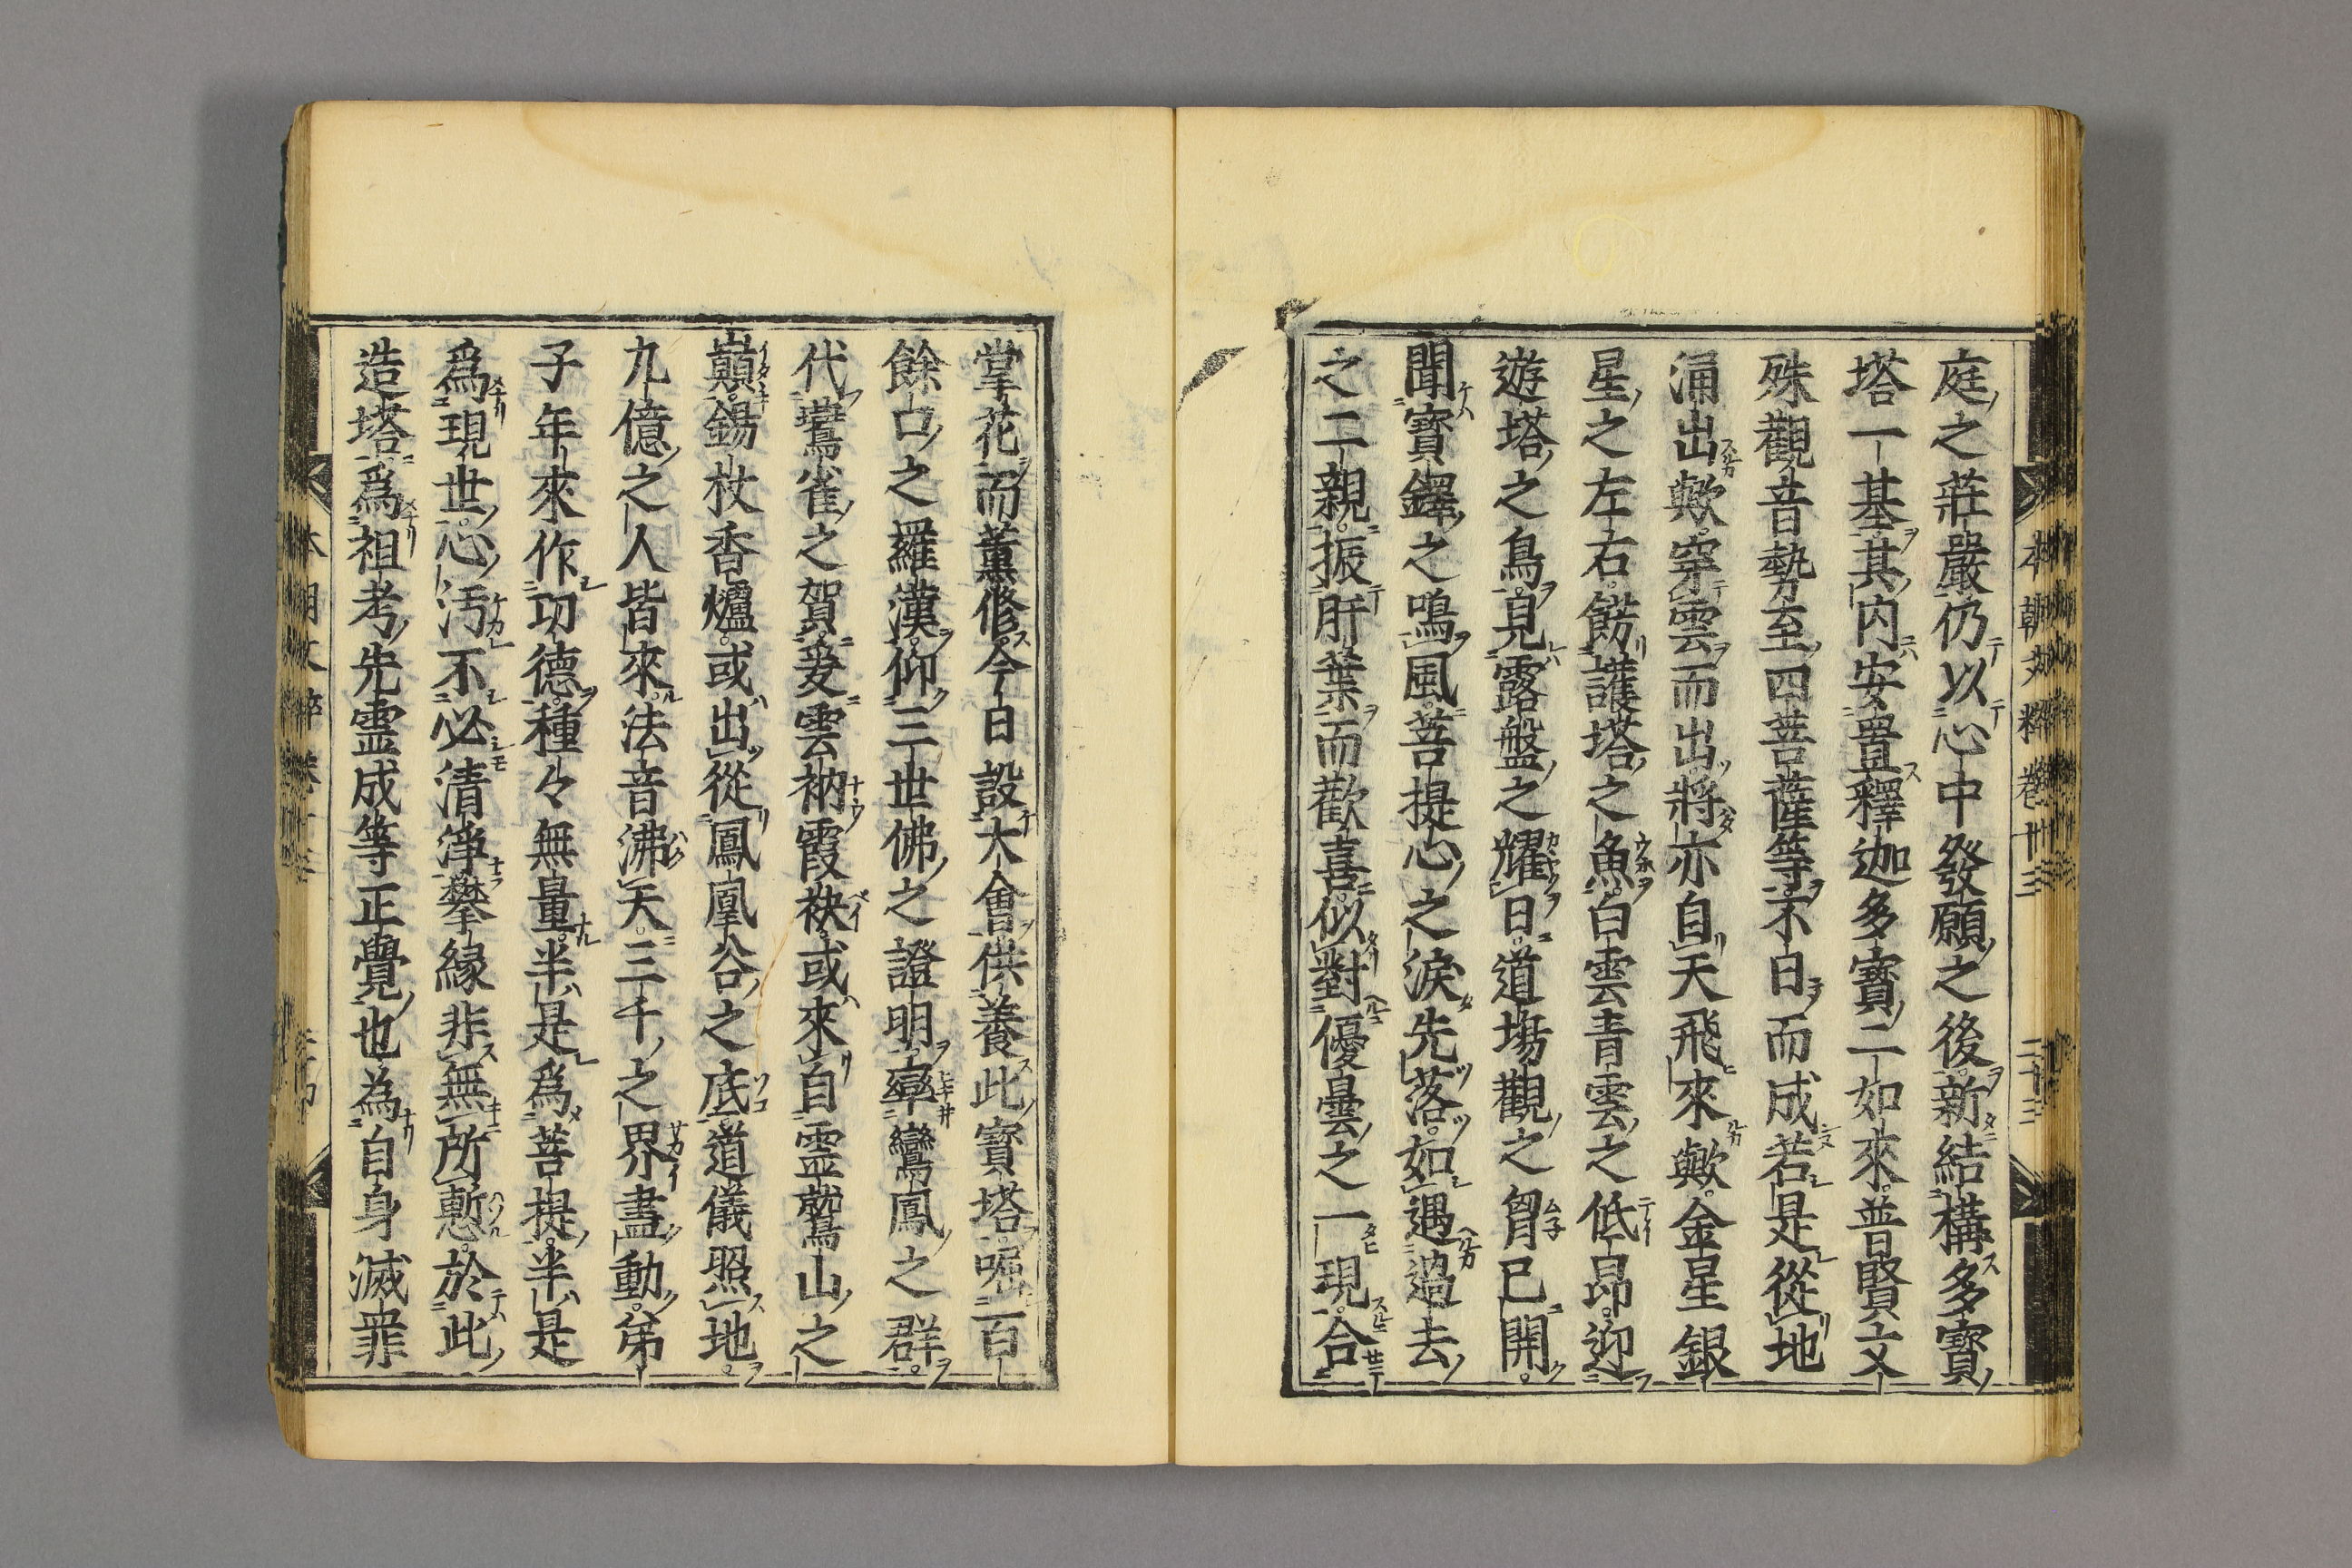 庭之莊嚴仍以心中發願之後新結構多寶
塔一基其内安置釋迦多寶二如來普賢文
殊觀音勢至四菩薩等不日而成若是從地
涌出歟穿雲而出將亦自天飛來歟金星銀
星之左右餝護塔之魚白雲青雲之低昂迎
遊塔之鳥見露盤之耀日道場觀之胷已開
聞寶鐸之鳴風菩提心之淚先落如遇過去
之二親振肝葉而歡喜似對優曇之一現合
本朝文粹卷十三 二十三
掌花而薫修今日設大會供養此寶塔嘱一百
餘口之羅漢仰三世佛之證明率鸞鳳之群
代鸎雀之賀爰雲衲霞袂或來自霊鷲山之
巔錫杖香爐或出從鳳凰谷之底道儀照地
九億之人皆來法音沸天三千之界盡動弟
子年來作功德種々無量半是爲菩提半是
爲現世心汚不必清淨攀縁非無所慙於此
造塔爲祖考先霊成等正覺也為自身滅罪